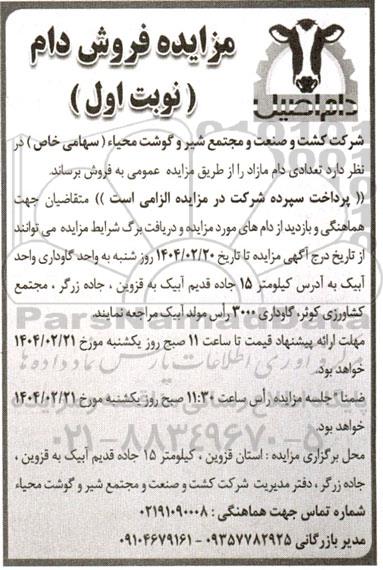 مزایده فروش دام
( نوبت اول )
دام اصیل
شرکت کشت و صنعت و مجتمع شیر و گوشت محیاء ( سهامی خاص ) در
نظر دارد تعدادی دام مازاد را از طریق مزایده عمومی به فروش برساند.
(( پرداخت سپرده شرکت در مزایده الزامی است )) متقاضیان جهت
هماهنگی و بازدید از دام های مورد مزایده و دریافت برگ شرایط مزایده می توانند
از تاریخ درج آگهی مزایده تا تاریخ ۱۴۰۴/۰۲/۲۰ روز شنبه به واحد گاوداری واحد
آبیک به آدرس کیلومتر ۱۵ جاده قدیم آبیک به قزوین ، جاده زرگر ، مجتمع
کشاورزی کوثر، گاوداری ۳۰۰۰ رأس مولد آبیک مراجعه نمایند.
مهلت ارائه پیشنهاد قیمت تا ساعت ۱۱ صبح روز یکشنبه مورخ ۱۴۰۴/۰۲/۲۱
خواهد بود.
ضمنا" جلسه مزایده رأس ساعت ۱۱:۳۰ صبح روز یکشنبه مورخ ۱۴۰۴/۰۲/۲۱
خواهد بود.
محل برگزاری مزایده : استان قزوین ، کیلومتر ۱۵ جاده قدیم آبیک به قزوین ،
جاده زرگر ، دفتر مدیریت شرکت کشت و صنعت و مجتمع شیر و گوشت محیاء
شماره تماس جهت هماهنگی : ۰۲۱۹۱۰۹۰۰۰۸
مدیر بازرگانی ۰۹۳۵۷۷۸۲۹۲۵ - ۰۹۱۰۴۶۷۹۱۶۱
ParsNamadData
۰۲۱-۸۸۳۴۹۶۷۰-۵